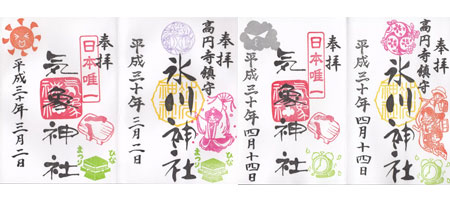 奉拝
日本唯一
気象神社
平成三十年三月二日
ひな
まつり
奉拝
高円寺鎮守
氷川神社
平成三十年三月二日
ひな
まつり
奉拝
日本唯一
気象神社
平成三十年四月十四日
奉拝
高円寺鎮守
氷川神社
平成三十年四月十四日